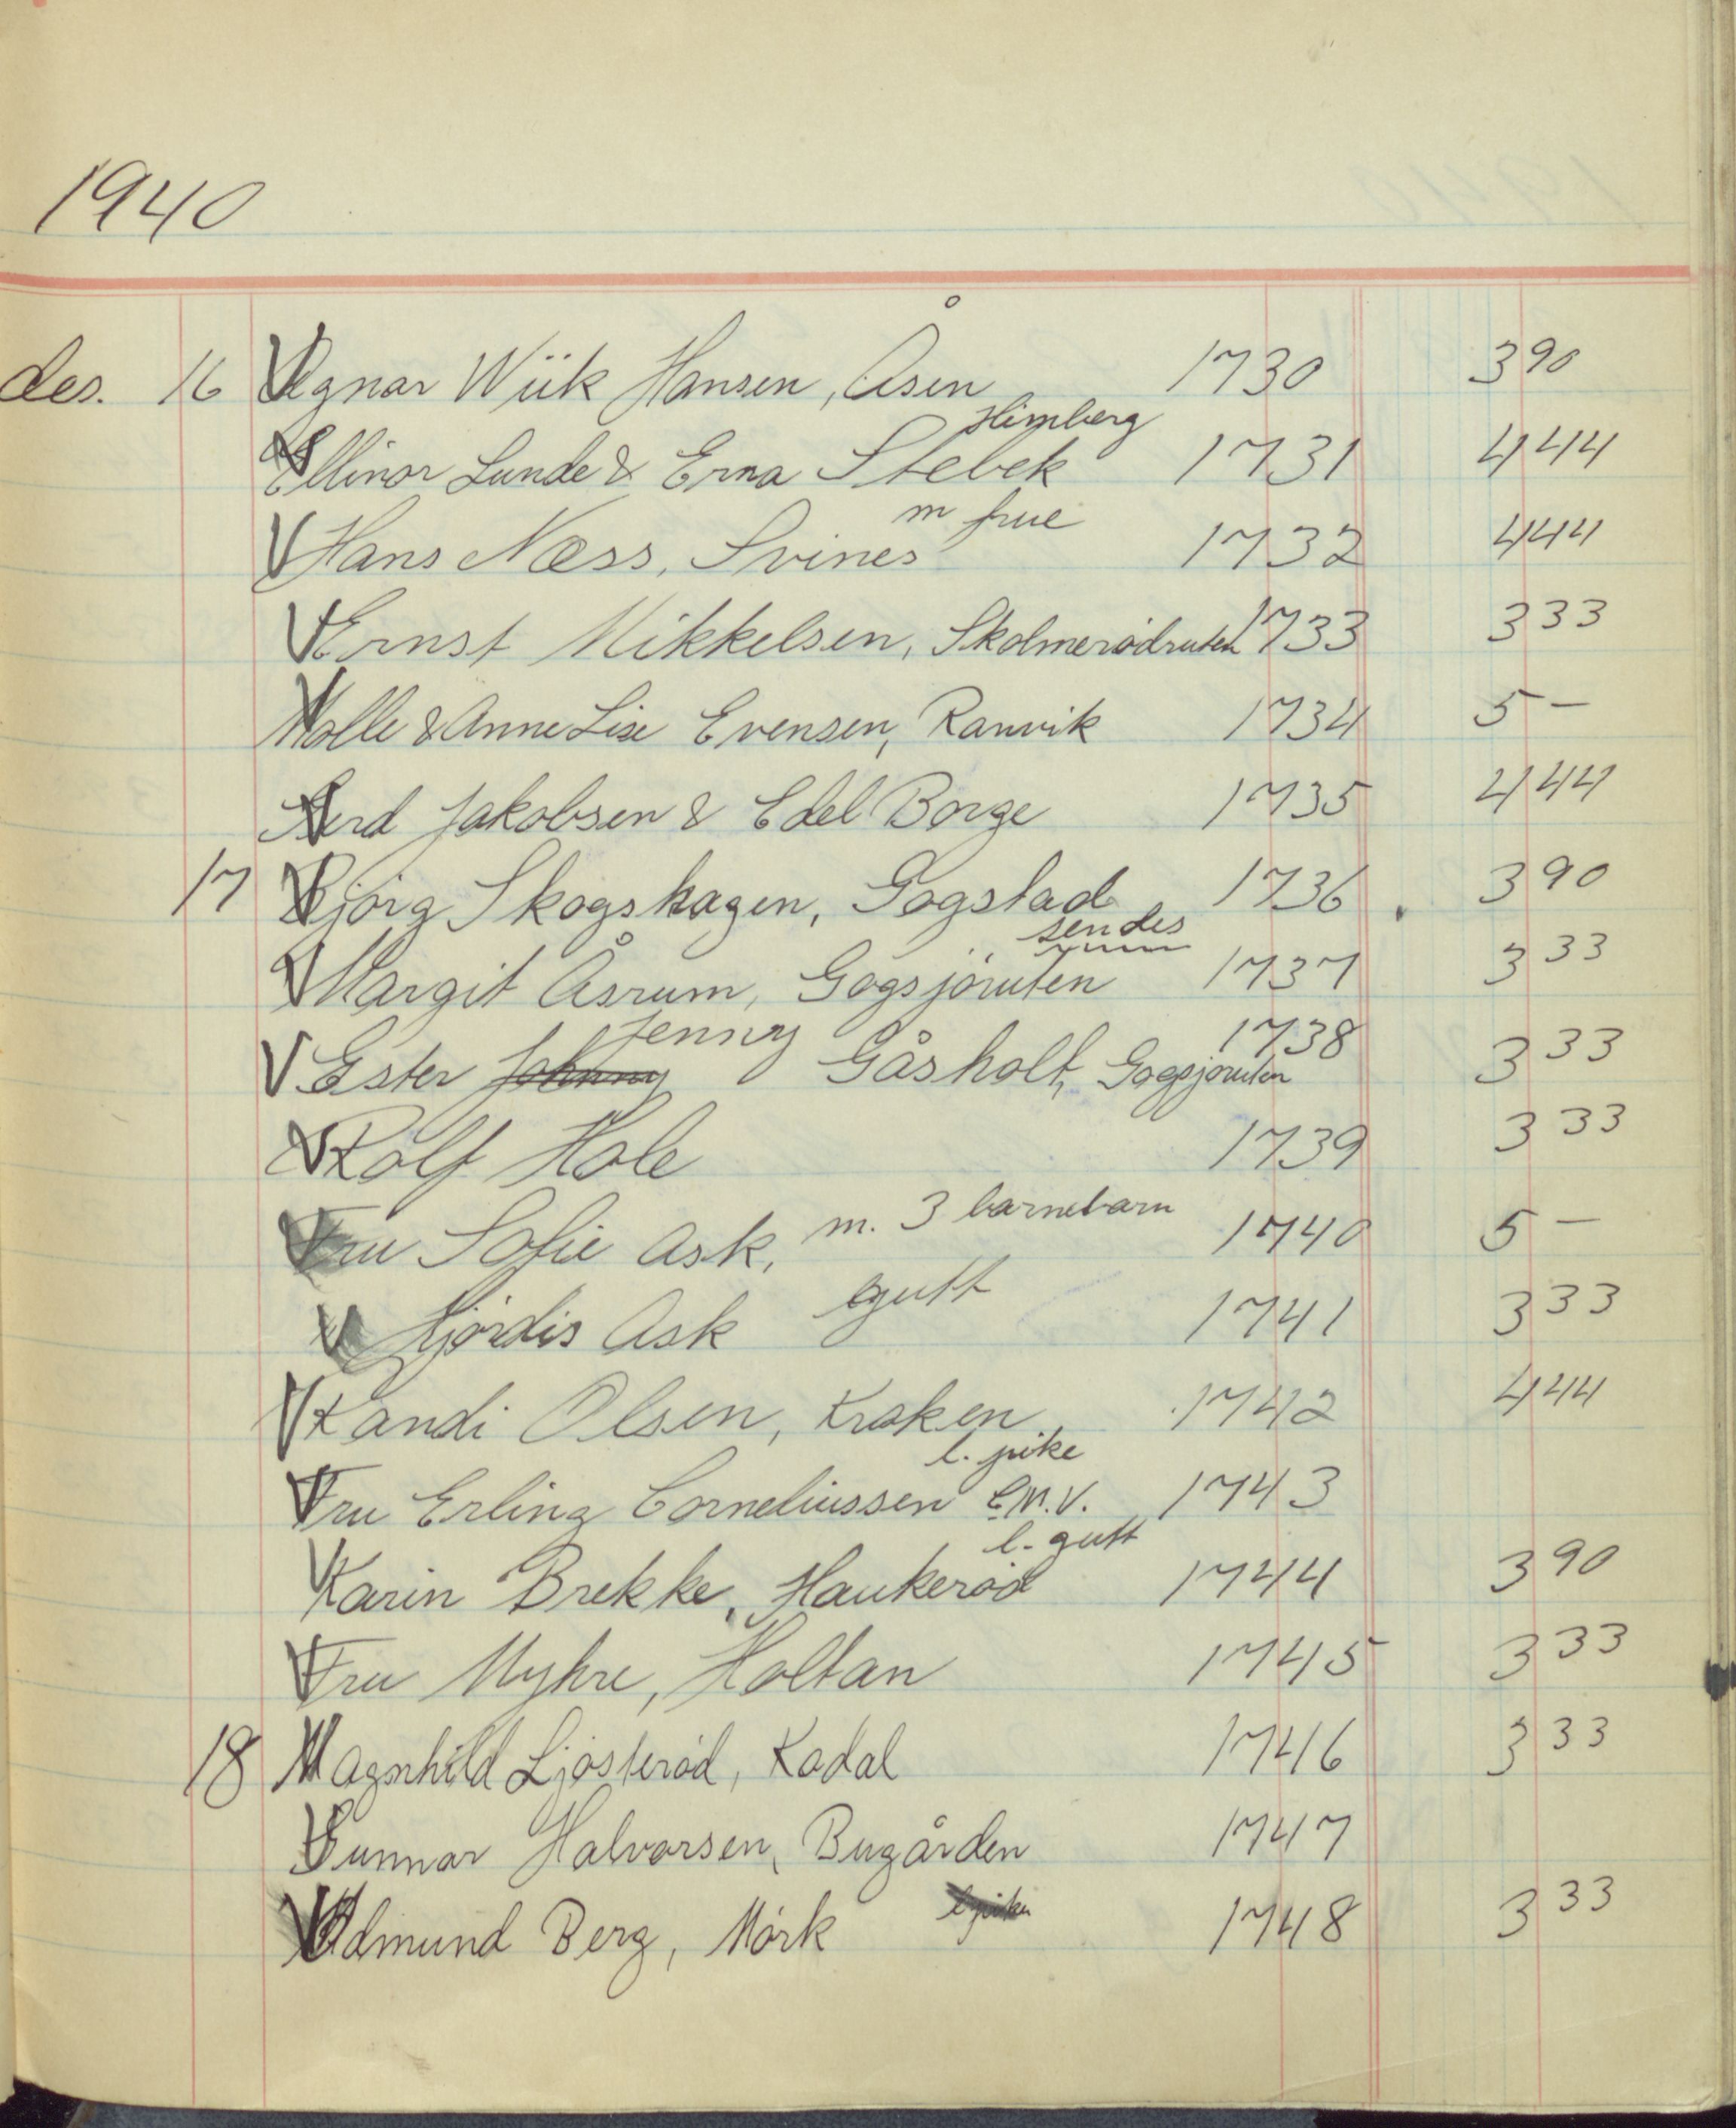 1940
des. 16 Agnar Wiik Hansen, Åsen 1730 3 90
Himberg
Ellinor Lunde & Erna Stebek 1731 4 44
m frue
Hans Næss, Svines 1732 4 44
Ernst Mikkelsen, Skolmerödruten 1733 3 33
Molle & Anne Lise Evensen, Ranvik 1734 5 -
Gerd Jakobsen & Edel Borge 1735 4 44
17 Björg Skogshagen, Gogstad 1736 3 90
sendes
Margit Åsrum, Gogsjöruten 1737 3 33
Jenny 1738
Ester Johnny Gåsholt, Gogsjöruten 3 33
Rolf Hole 1739 3 33
Fru Sofie Ask, m. 3 barnebarn 1740 5 -
Hjördis Ask gutt 1741 3 33
Randi Olsen, Kroken 1742 4 44
l. pike
Fru Erling Corneliussen E.M.V. 1743
l. gutt
Karin Brekke, Haukeröd 1744 3 90
Fru Myhre, Holtan 1745 3 33
18 Magnhild Ljösteröd, Kodal 1746 3 33
Gunnar Halvorsen, Bugården 1747
Edmund Berg, Mörk l pike 1748 3 33